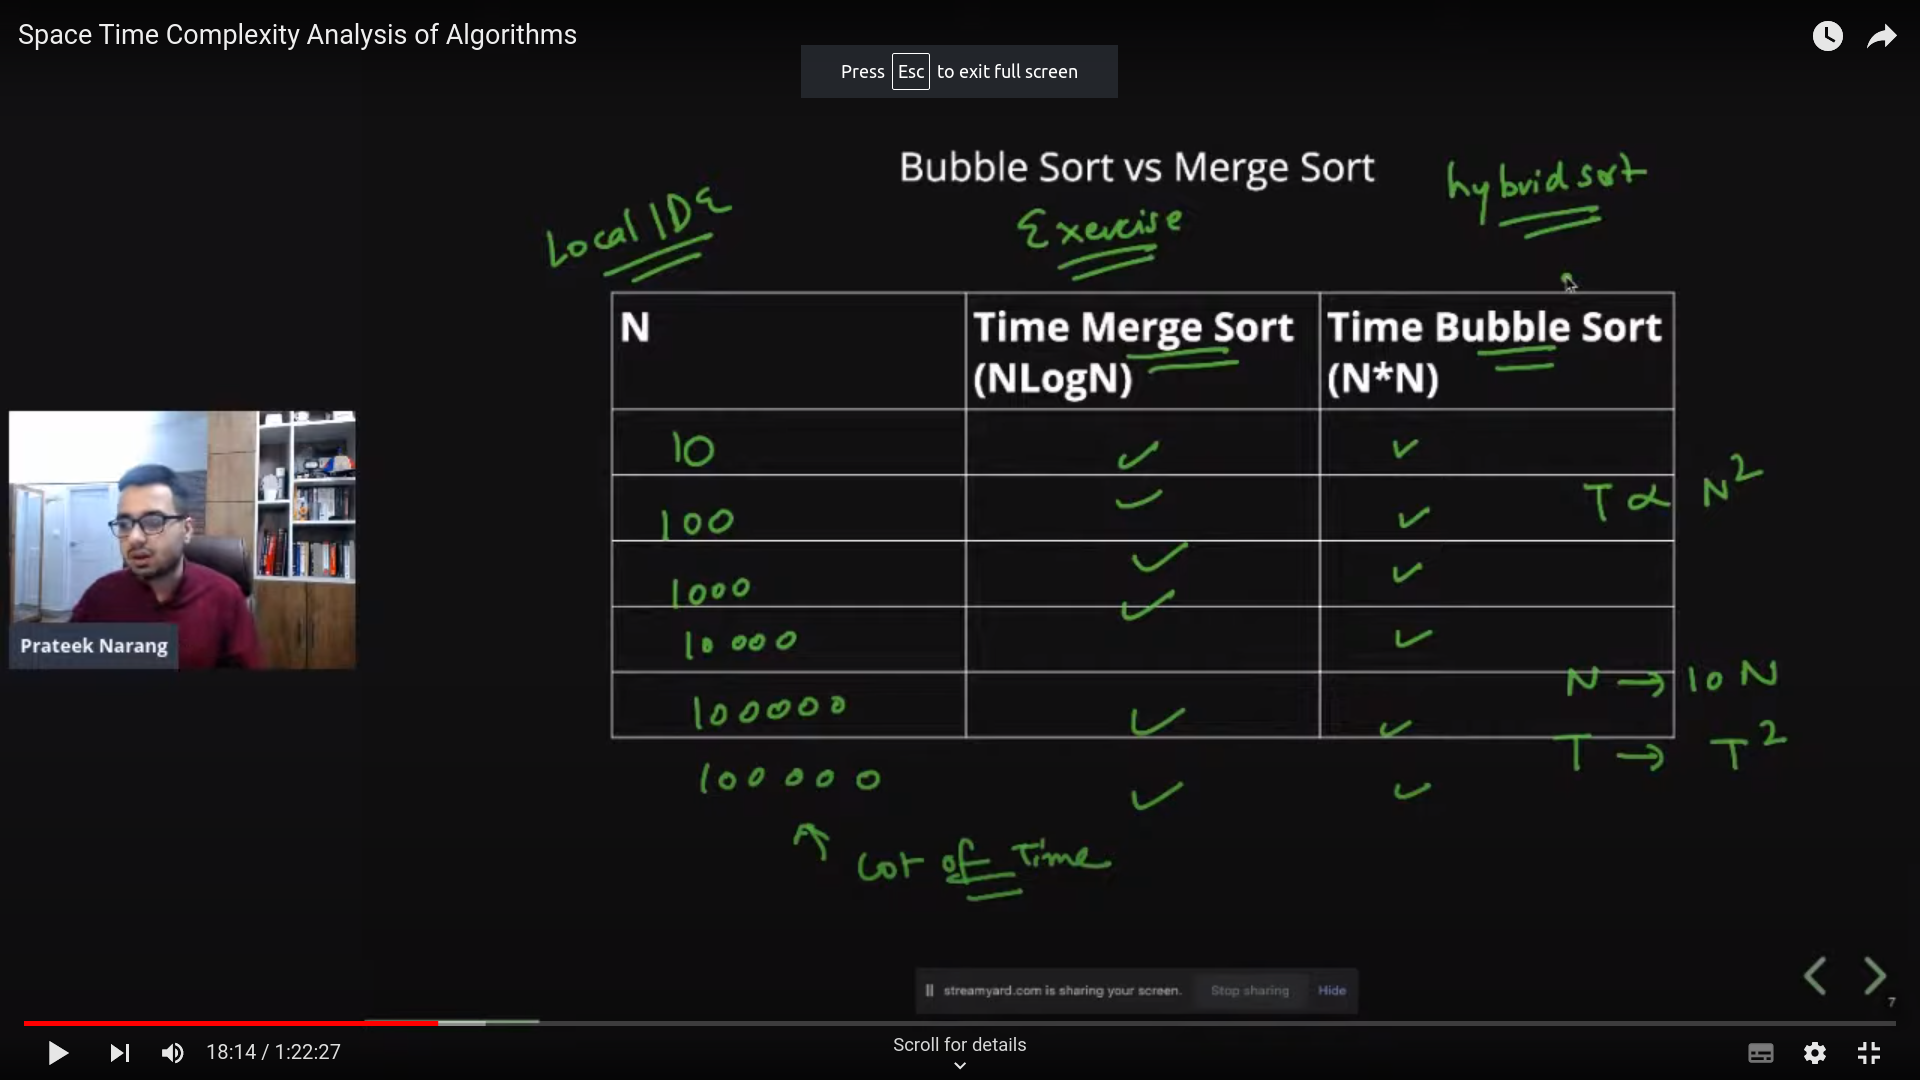 Space Time Complexity Analysis of Algorithms
Press Esc to exit full screen
Bubble Sort vs Merge Sort
hybrid sort
Local IDE
Exercise
N
Time Merge Sort (NLogN)
Time Bubble Sort (N*N)
10
100
T ∝ N²
1000
10000
N → 10 N
100000
T → T²
100000
Lot of Time
Prateek Narang
streamyard.com is sharing your screen. Stop sharing Hide
7
18:14 / 1:22:27
Scroll for details